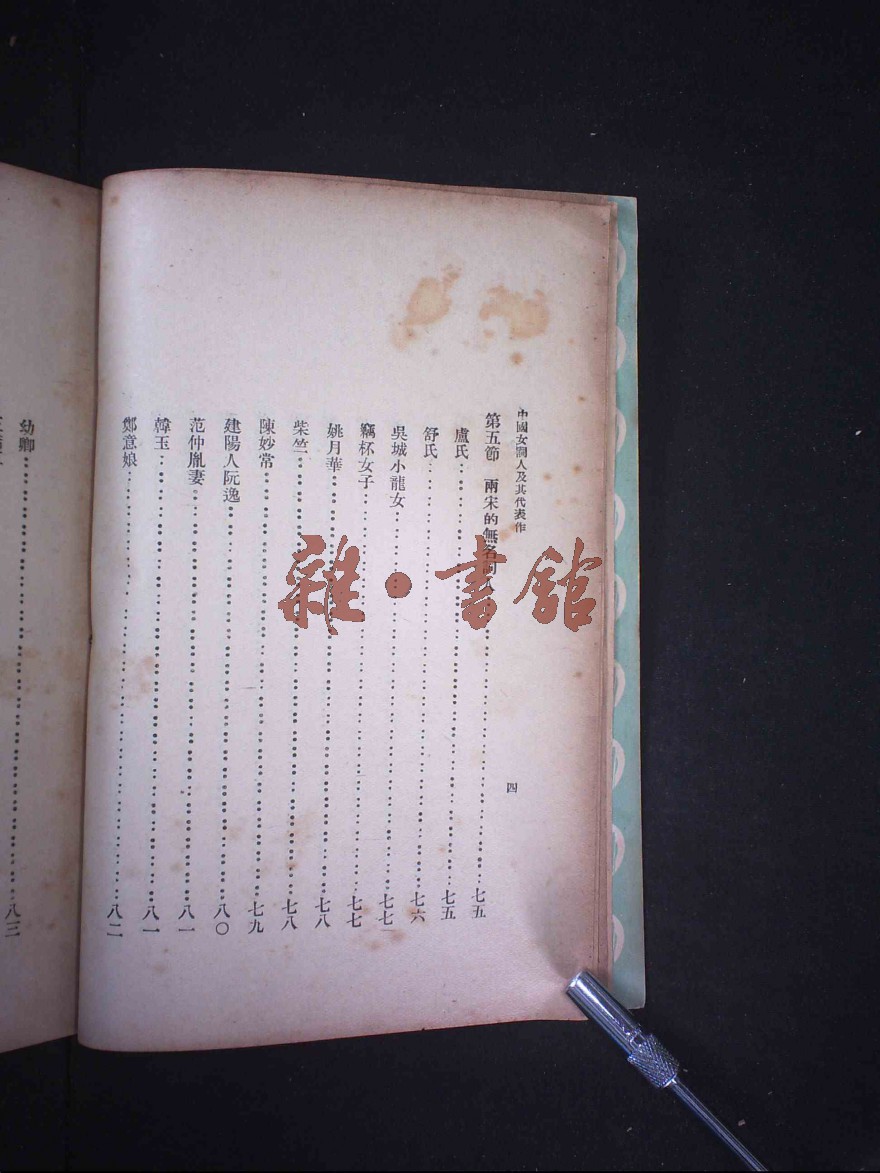 中國女詞人及其代表作
四
第五節 兩宋的無名詞…………七五
盧氏…………七五
舒氏…………七六
吳城小龍女…………七七
竊杯女子…………七七
姚月華…………七八
柴竺…………七八
陳妙常…………七九
建陽人阮逸…………八〇
范仲胤妻…………八一
韓玉…………八一
鄭意娘…………八二
幼卿…………八三
雜·書館